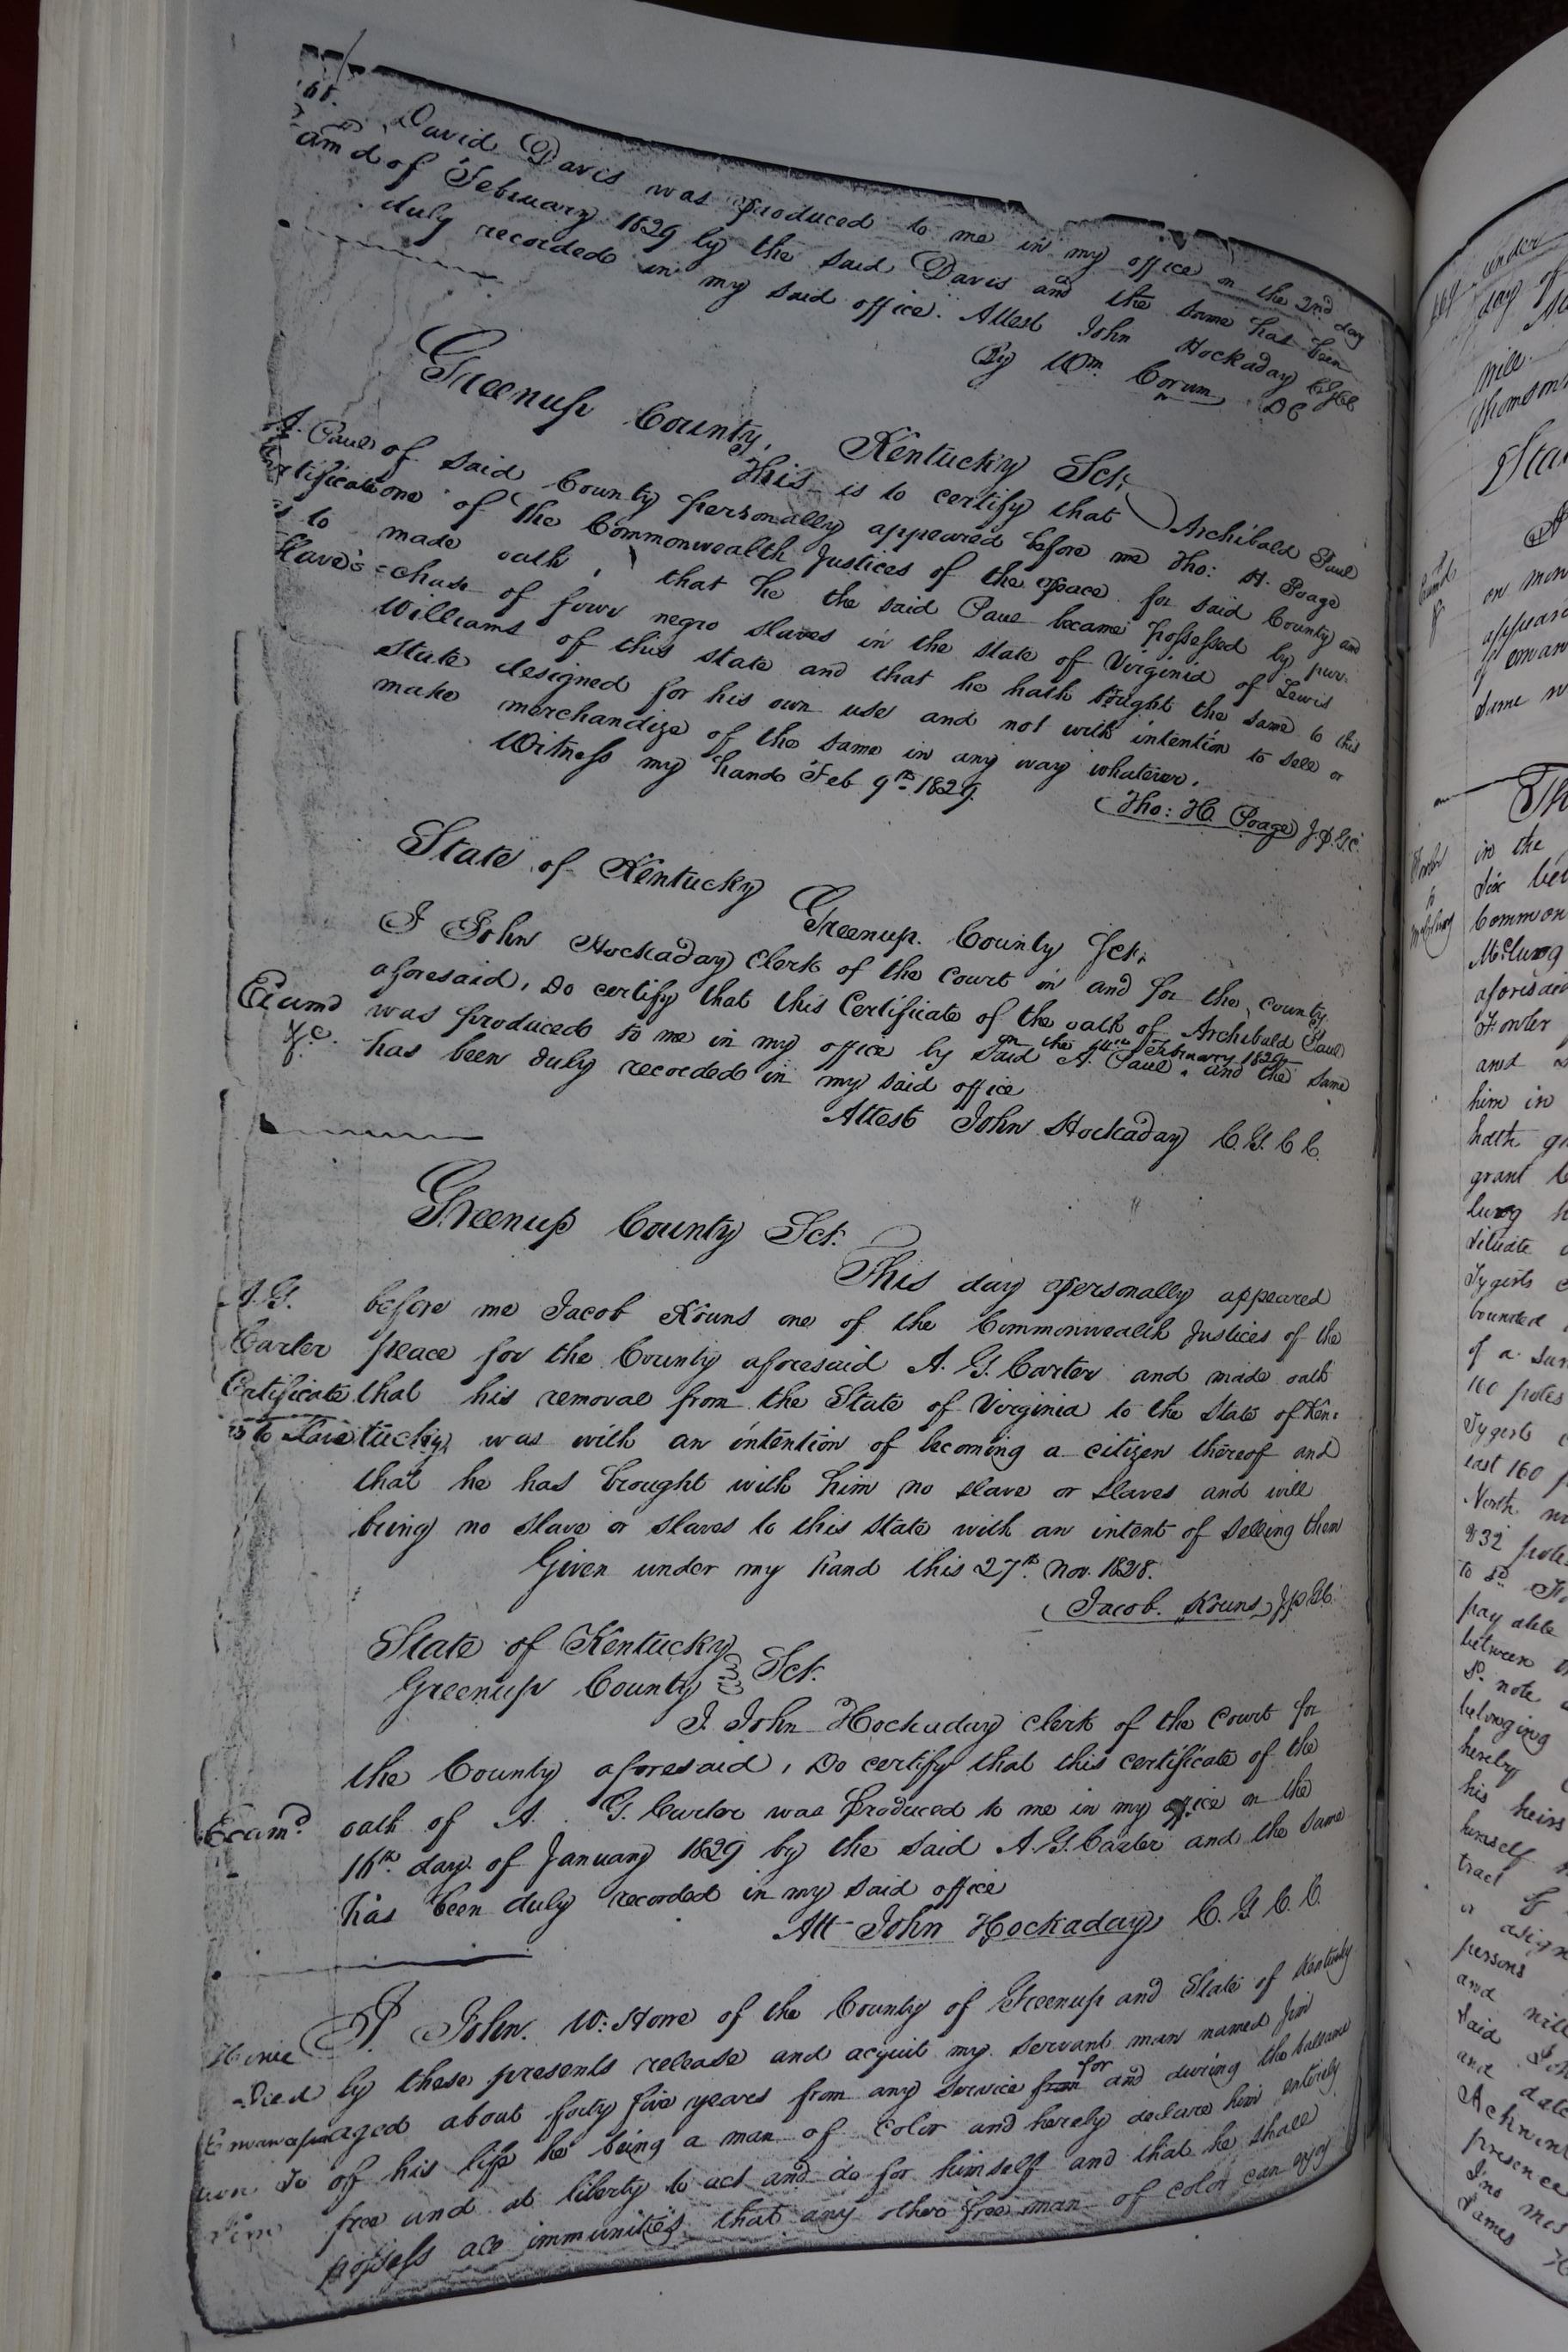 68.
David Davis was produced to me in my office on the 2nd day
of February 1829 by the said Davis and the same has been
duly recorded in my said office. Attest John Hockaday
By Wm. Corum DC
Greenup County, Kentucky Sct.
This is to certify that Archibald Paul
of said County personally appeared before me Tho: H. Poage
one of the Commonwealth Justices of the peace for said County and
made oath, that he the said Paul became possessed by pur=
=chase of four negro slaves in the state of Virginia of Lewis
Williams of this state and that he hath brought the same to this
state designed for his own use and not with intention to sell or
make merchandize of the same in any way whatever.
Witness my hand Feb 9th 1829.
Tho: H. Poage J.P.G.C.
A. Paul
Certificate
as to
Slaves
State of Kentucky
Greenup County Sct.
I John Hockaday Clerk of the court in and for the county
aforesaid, Do certify that this Certificate of the oath of Archibald Paul
on the February 1829
was produced to me in my office by said A. Paul, and the same
has been duly recorded in my said office
Attest John Hockaday C.G.C.C.
Examd
Greenup County Sct.
This day personally appeared
before me Jacob Kouns one of the Commonwealth Justices of the
peace for the County aforesaid A. G. Carter and made oath
that his removal from the State of Virginia to the State of Ken=
tucky, was with an intention of becoming a citizen thereof and
that he has brought with him no slave or slaves and will
bring no slave or slaves to this state with an intent of selling them
Given under my hand this 27th Nov. 1828.
Jacob. Kouns J.P.G.C.
A.G.
Carter
Certificate
as to Slave
State of Kentucky
Greenup County Sct.
I John Hockaday clerk of the Court for
the County aforesaid, Do certify that this certificate of the
oath of A. G. Carter was produced to me in my office on the
16th day of January 1829 by the said A.G. Carter and the same
has been duly recorded in my said office
Att John Hockaday C.G.C.C.
Examd
I John. W: Howe of the County of Greenup and State of Kentucky
by these presents release and acquit my servant man named Jim
for
aged about forty five years from any service from and during the ballance
of his life he being a man of Color and hereby declare him entirely
free and at liberty to act and do for himself and that he shall
possess all immunities that any other free man of color can enjoy
Howe
Deed
Emancipa
tion to
Jim
under
day of
will
on
same
in the
Six
Common
McClurg
aforesaid
Fowler
and
him in
hath
grant
situate
Tygerts
bounded
of a
160 poles
Tygerts
east 160
North
232 poles
pay able
between
note
belonging
hereby
his heirs
himself
tract
or assign
persons
and will
said
and date
presence
James